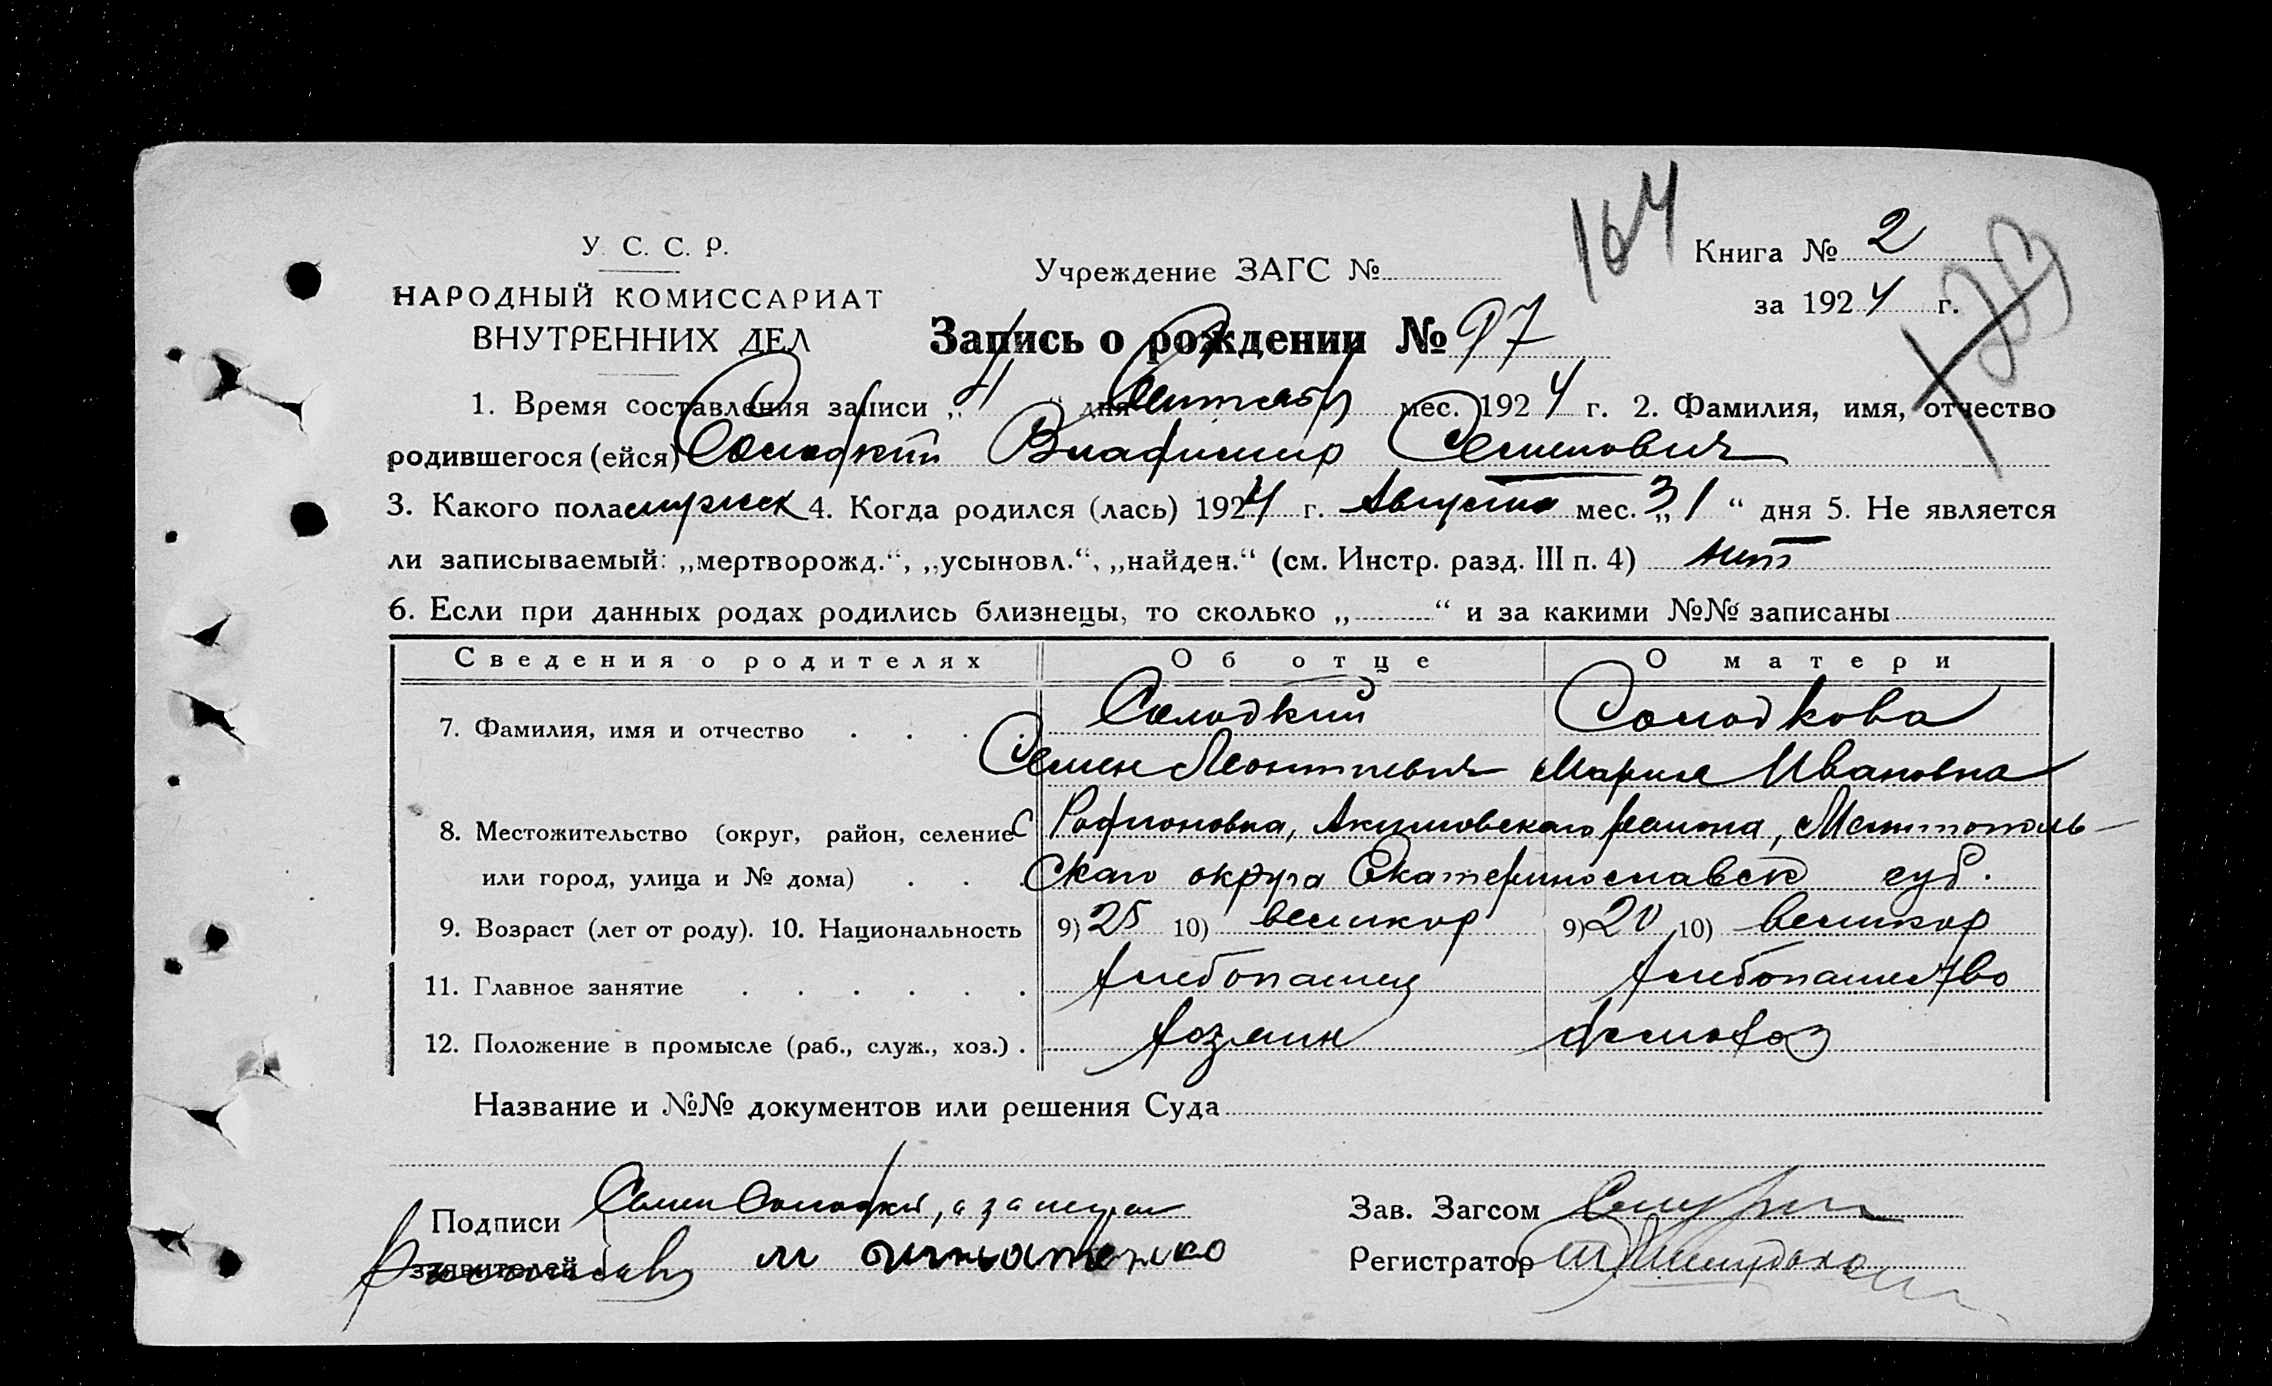 У. С. С. Р.
НАРОДНЫЙ КОМИССАРИАТ
ВНУТРЕННИХ ДЕЛ
Учреждение ЗАГС №
164
Книга № 2
за 1924 г.
Запись о рождении № 97
1. Время составления записи „4“ дня Сентябр мес. 1924 г. 2. Фамилия, имя, отчество
родившегося (ейся) Солодкий Владимир Семенович
3. Какого пола мужск 4. Когда родился (лась) 1924 г. Августа мес. „31“ дня 5. Не является
ли записываемый: „мертворожд.“, „усыновл.“, „найден.“ (см. Инстр. разд. III п. 4) нет
6. Если при данных родах родились близнецы, то сколько „ “ и за какими №№ записаны
Сведения о родителях Об отце О матери
7. Фамилия, имя и отчество . . . . Солодкий Солодкова
Семен Леонтиевич Мария Ивановна
8. Местожительство (округ, район, селение С Родионовка, Акимовскаго района, Мелитополь-
или город, улица и № дома) . . . скаго округа Екатеринославск губ.
9. Возраст (лет от роду). 10. Национальность 9) 25 10) великор 9) 20 10) великор
11. Главное занятие . . . . . . хлебопашец хлебопашество
12. Положение в промысле (раб., служ., хоз.) . хозяин домохоз
Название и №№ документов или решения Суда
Подписи Семен Солодкий, а за
заявителей м
Зав. Загсом
Регистратор